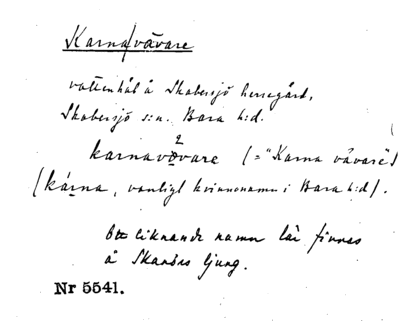 Karna/vävare
vattenhål å Skabersjö herregård,
Skabersjö s:n. Bara h:d.
karnavǫ²vare (="Karna vävare")
(kárna, vanligt kvinnonamn i Bara h:d).
Ett liknande namn lär finnas
å Skanörs ljung.
Nr 5541.